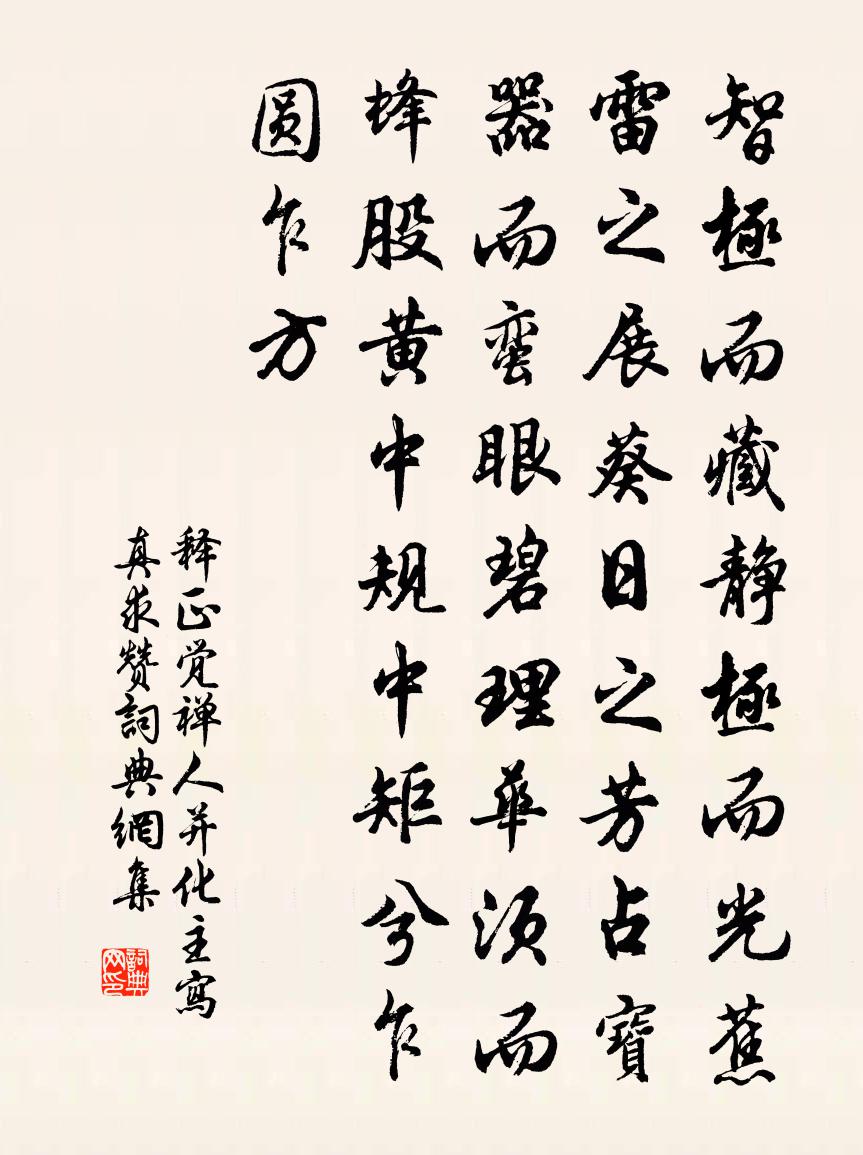 智極而藏静極而光蕉
雷之展葵日之芳占寶
器而蛮眼碧理華須而
蜂股黄中規中矩兮乍
圓乍方
释正觉禅人并化主寫
真求赞詞典網集
詞典网印